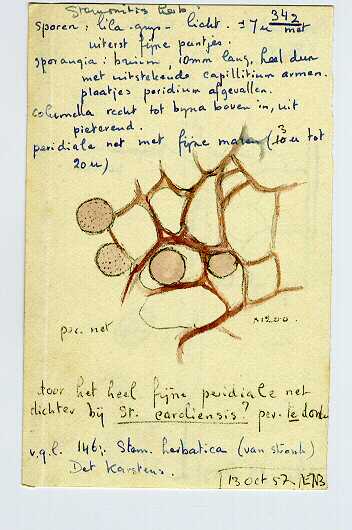 Stemonitis herb:
342
sporen: lila-grijs- licht. ± 7µ met
uiterst fijne puntjes.
sporangia: bruin, 10mm lang, heel dun
met uitstekende capillitium armen.
plaatjes peridium afgevallen.
columella recht tot byna boven in, uit
pieterend.
peridiale net met fijne mazen (3µ tot
20µ)
×1200.
per. net
door het heel fijne peridiale net
dichter bij St. carolinensis? per. te donker
v.q.l. 146: Stem. herbatica (van stronk)
Det Karstens.
13 Oct 57 ENB